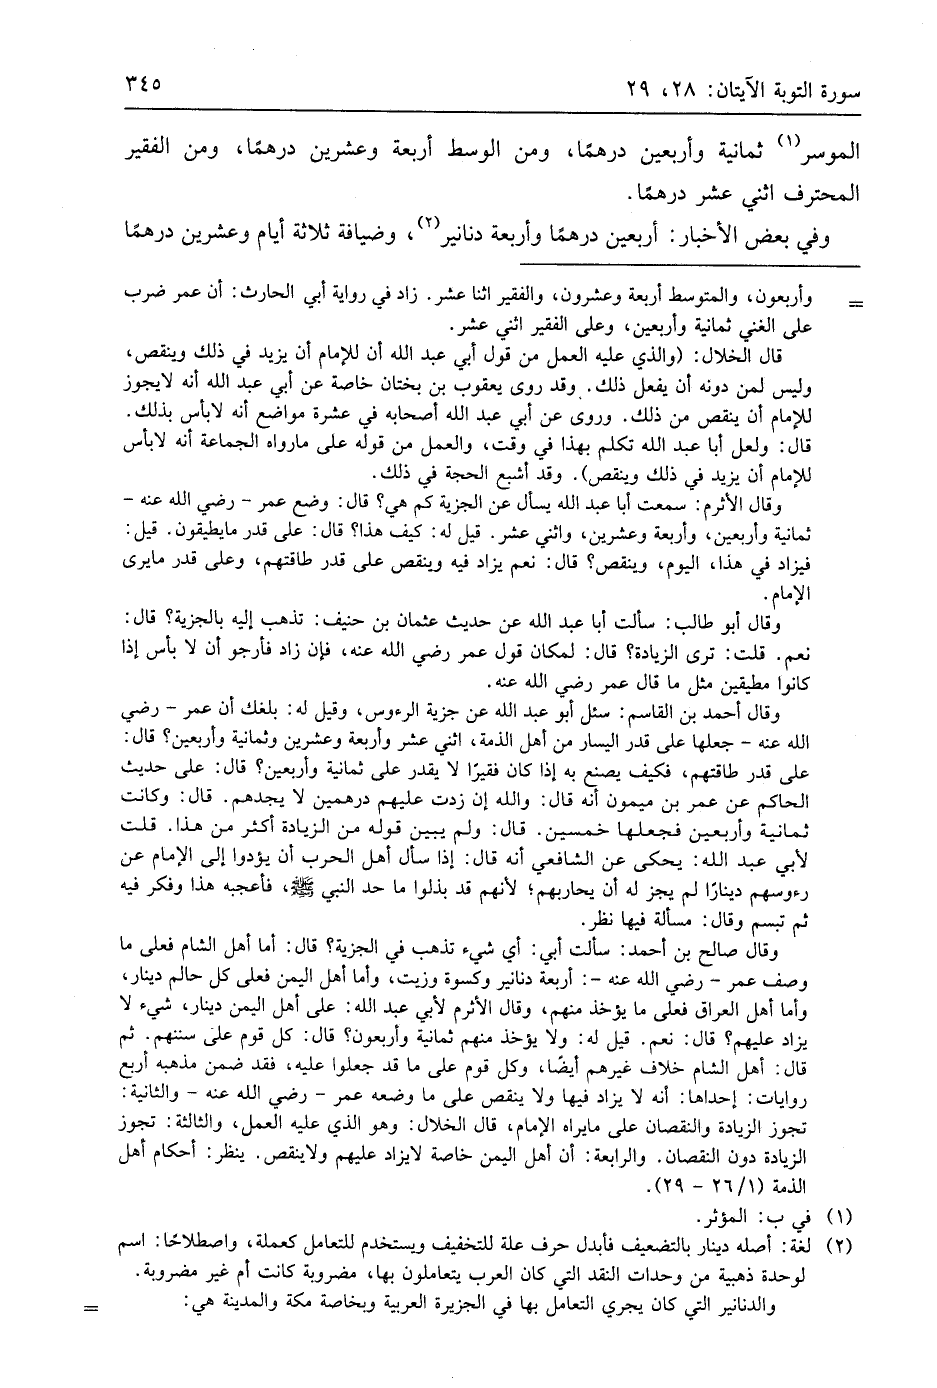 سورة التوبة الآيتان: ٢٨، ٢٩ ٣٤٥
الموسر(١) ثمانية وأربعين درهمًا، ومن الوسط أربعة وعشرين درهمًا، ومن الفقير
المحترف اثني عشر درهمًا.
وفي بعض الأخبار: أربعين درهمًا وأربعة دنانير(٢)، وضيافة ثلاثة أيام وعشرين درهمًا
= وأربعون، والمتوسط أربعة وعشرون، والفقير اثنا عشر. زاد في رواية أبي الحارث: أن عمر ضرب
على الغني ثمانية وأربعين، وعلى الفقير اثني عشر.
قال الخلال: (والذي عليه العمل من قول أبي عبد الله أن للإمام أن يزيد في ذلك وينقص،
وليس لمن دونه أن يفعل ذلك. وقد روى يعقوب بن بختان خاصة عن أبي عبد الله أنه لايجوز
للإمام أن ينقص من ذلك. وروى عن أبي عبد الله أصحابه في عشرة مواضع أنه لابأس بذلك.
قال: ولعل أبا عبد الله تكلم بهذا في وقت، والعمل من قوله على مارواه الجماعة أنه لابأس
للإمام أن يزيد في ذلك وينقص). وقد أشبع الحجة في ذلك.
وقال الأثرم: سمعت أبا عبد الله يسأل عن الجزية كم هي؟ قال: وضع عمر - رضي الله عنه -
ثمانية وأربعين، وأربعة وعشرين، واثني عشر. قيل له: كيف هذا؟ قال: على قدر مايطيقون. قيل:
فيزاد في هذا، اليوم، وينقص؟ قال: نعم يزاد فيه وينقص على قدر طاقتهم، وعلى قدر مايرى
الإمام.
وقال أبو طالب: سألت أبا عبد الله عن حديث عثمان بن حنيف: تذهب إليه بالجزية؟ قال:
نعم. قلت: ترى الزيادة؟ قال: لمكان قول عمر رضي الله عنه، فإن زاد فأرجو أن لا بأس إذا
كانوا مطيقين مثل ما قال عمر رضي الله عنه.
وقال أحمد بن القاسم: سئل أبو عبد الله عن جزية الرءوس، وقيل له: بلغك أن عمر - رضي
الله عنه - جعلها على قدر اليسار من أهل الذمة، اثني عشر وأربعة وعشرين وثمانية وأربعين؟ قال:
على قدر طاقتهم، فكيف يصنع به إذا كان فقيرًا لا يقدر على ثمانية وأربعين؟ قال: على حديث
الحاكم عن عمر بن ميمون أنه قال: والله إن زدت عليهم درهمين لا يجدهم. قال: وكانت
ثمانية وأربعين فجعلها خمسين. قال: ولم يبين قوله من الزيادة أكثر من هذا. قلت
لأبي عبد الله: يحكى عن الشافعي أنه قال: إذا سأل أهل الحرب أن يؤدوا إلى الإمام عن
رءوسهم دينارًا لم يجز له أن يحاربهم؛ لأنهم قد بذلوا ما حد النبي ﷺ، فأعجبه هذا وفكر فيه
ثم تبسم وقال: مسألة فيها نظر.
وقال صالح بن أحمد: سألت أبي: أي شيء تذهب في الجزية؟ قال: أما أهل الشام فعلى ما
وصف عمر - رضي الله عنه -: أربعة دنانير وكسوة وزيت، وأما أهل اليمن فعلى كل حالم دينار،
وأما أهل العراق فعلى ما يؤخذ منهم، وقال الأثرم لأبي عبد الله: على أهل اليمن دينار، شيء لا
يزاد عليهم؟ قال: نعم. قيل له: ولا يؤخذ منهم ثمانية وأربعون؟ قال: كل قوم على سننهم. ثم
قال: أهل الشام خلاف غيرهم أيضًا، وكل قوم على ما قد جعلوا عليه، فقد ضمن مذهبه أربع
روايات: إحداها: أنه لا يزاد فيها ولا ينقص على ما وضعه عمر - رضي الله عنه - والثانية:
تجوز الزيادة والنقصان على مايراه الإمام، قال الخلال: وهو الذي عليه العمل، والثالثة: تجوز
الزيادة دون النقصان. والرابعة: أن أهل اليمن خاصة لايزاد عليهم ولاينقص. ينظر: أحكام أهل
الذمة (١/ ٢٦ - ٢٩).
(١) في ب: المؤثر.
(٢) لغة: أصله دينار بالتضعيف فأبدل حرف علة للتخفيف ويستخدم للتعامل كعملة، واصطلاحًا: اسم
لوحدة ذهبية من وحدات النقد التي كان العرب يتعاملون بها، مضروبة كانت أم غير مضروبة.
والدنانير التي كان يجري التعامل بها في الجزيرة العربية وبخاصة مكة والمدينة هي: =